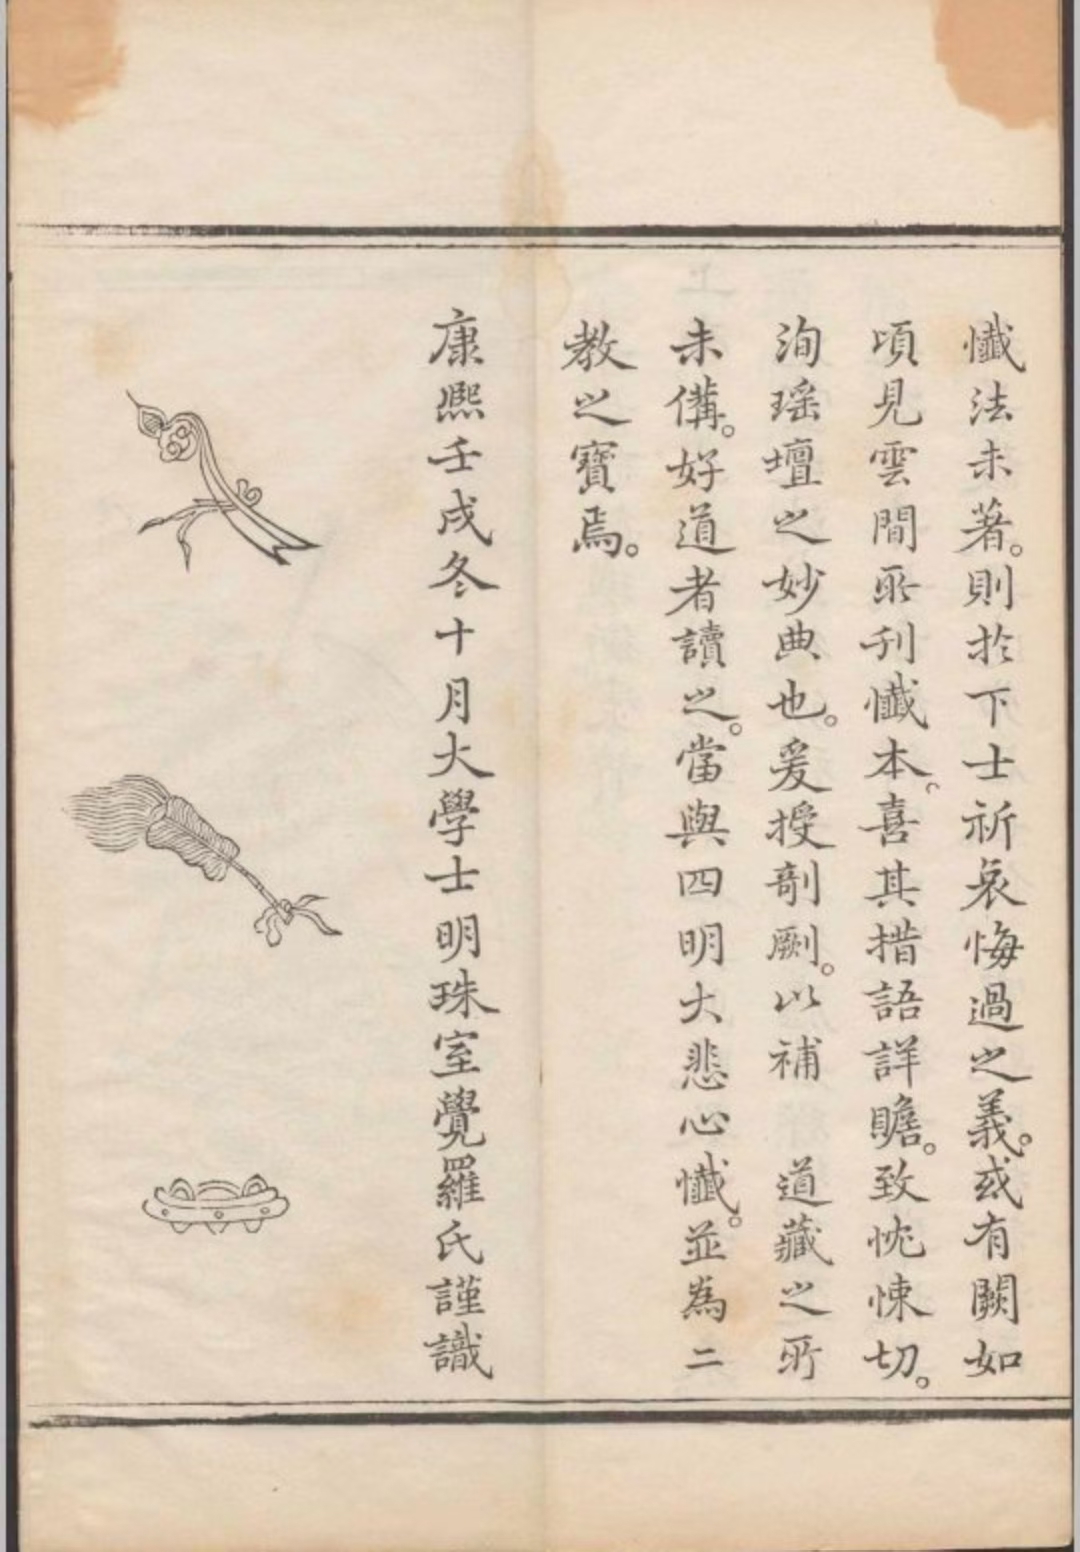 懺法未著。則扵下士祈哀悔過之義。或有闕如
頃見雲間所刋懺本。喜其措語詳贍。致忱悚切。
洵瑶壇之妙典也。爰授剞劂。以補　道藏之所
未備。好道者讀之。當與四明大悲心懺。並為二
教之寶焉。
康熙壬戌冬十月大學士明珠室覺羅氏謹識